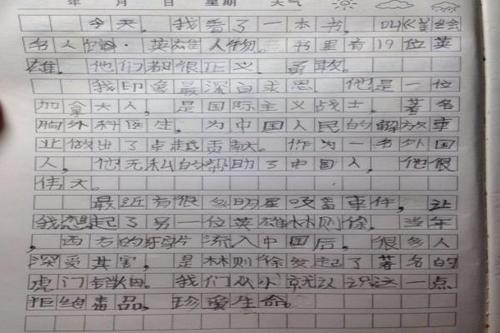 年 月 日 星期 天气
今天,我看了一本书。叫《
名人 · 英雄人物。书里有19位英
雄。他们都很正义、勇敢。
我印象最深白求恩。他是一位
加拿大人,是国际主义战士,著名
胸外科医生。为中国人民的解放事
业做出了卓越贡献。作为一名外国
人,他无私的帮助了中国人,他很
伟大。
最近有很多明星吸毒事件,让
我想起了另一位英雄林则徐。当年
,西方的鸦片流入中国后,很多人
深受其害,是林则徐发起了著名的
虎门销烟。我们从小就认识这一点
拒绝毒品,珍爱生命。